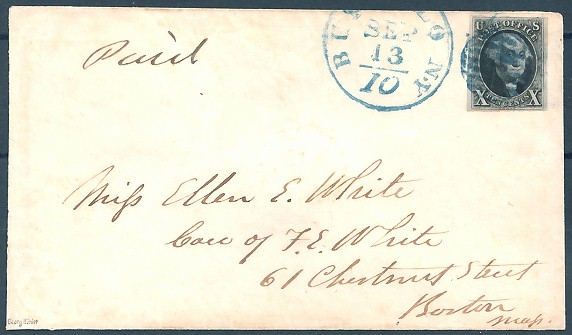 Paid
SEP
13
10
N.Y
U S
POST OFFICE
X TEN CENTS X
Miss Ellen E. White
Care of F. E. White
61 Chestnut Street
Boston
Mass.